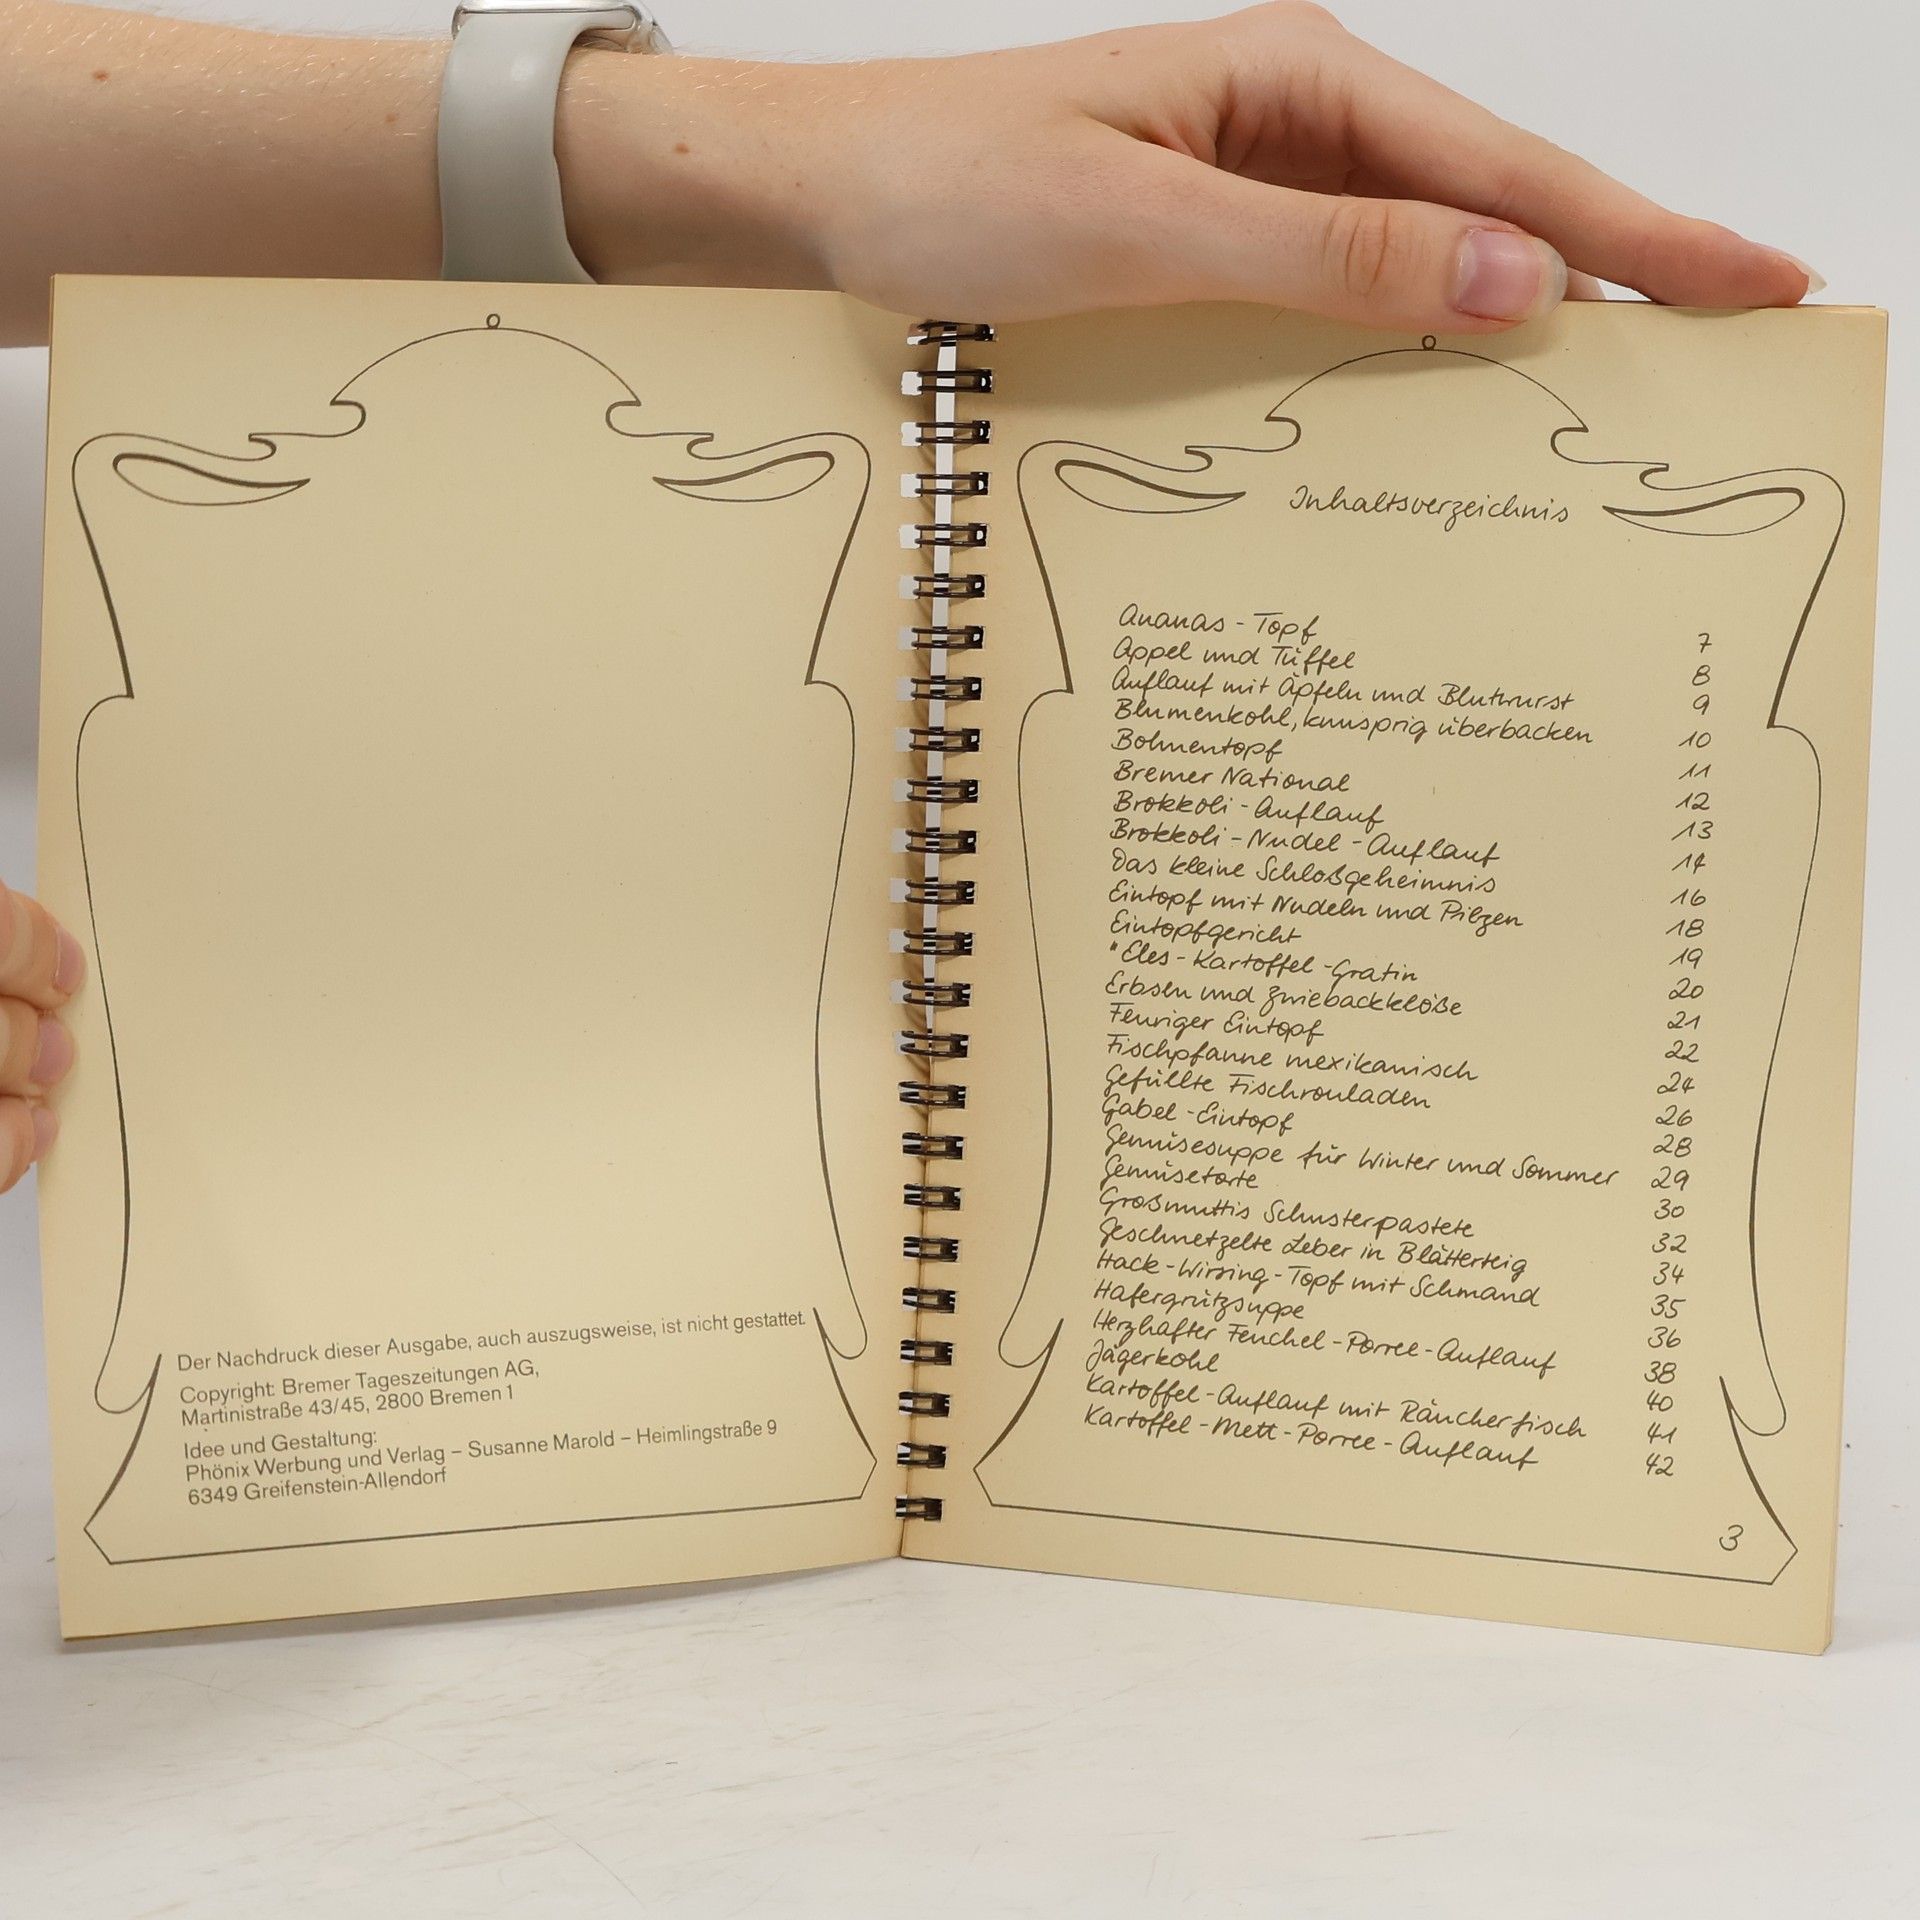 Der Nachdruck dieser Ausgabe, auch auszugsweise, ist nicht gestattet.
Copyright: Bremer Tageszeitungen AG,
Martinistraße 43/45, 2800 Bremen 1
Idee und Gestaltung:
Phönix Werbung und Verlag – Susanne Marold – Heimlingstraße 9
6349 Greifenstein-Allendorf
Inhaltsverzeichnis
Ananas - Topf 7
Appel und Tüffel 8
Auflauf mit Äpfeln und Blutwurst 9
Blumenkohl, knusprig überbacken 10
Bohnentopf 11
Bremer National 12
Brokkoli - Auflauf 13
Brokkoli - Nudel - Auflauf 14
Das kleine Schloßgeheimnis 16
Eintopf mit Nudeln und Pilzen 18
Eintopfgericht 19
"Eles - Kartoffel - Gratin 20
Erbsen und Zwiebackklöße 21
Feuriger Eintopf 22
Fischpfanne mexikanisch 24
Gefüllte Fischrouladen 26
Gabel - Eintopf 28
Gemüsesuppe für Winter und Sommer 29
Gemüsetorte 30
Großmuttis Schusterpastete 32
Geschnetzelte Leber in Blätterteig 34
Hack - Wirsing - Topf mit Schmand 35
Hafergrützsuppe 36
Herzhafter Fenchel - Porree - Auflauf 38
Jägerkohl 40
Kartoffel - Auflauf mit Räucherfisch 41
Kartoffel - Mett - Porree - Auflauf 42
3